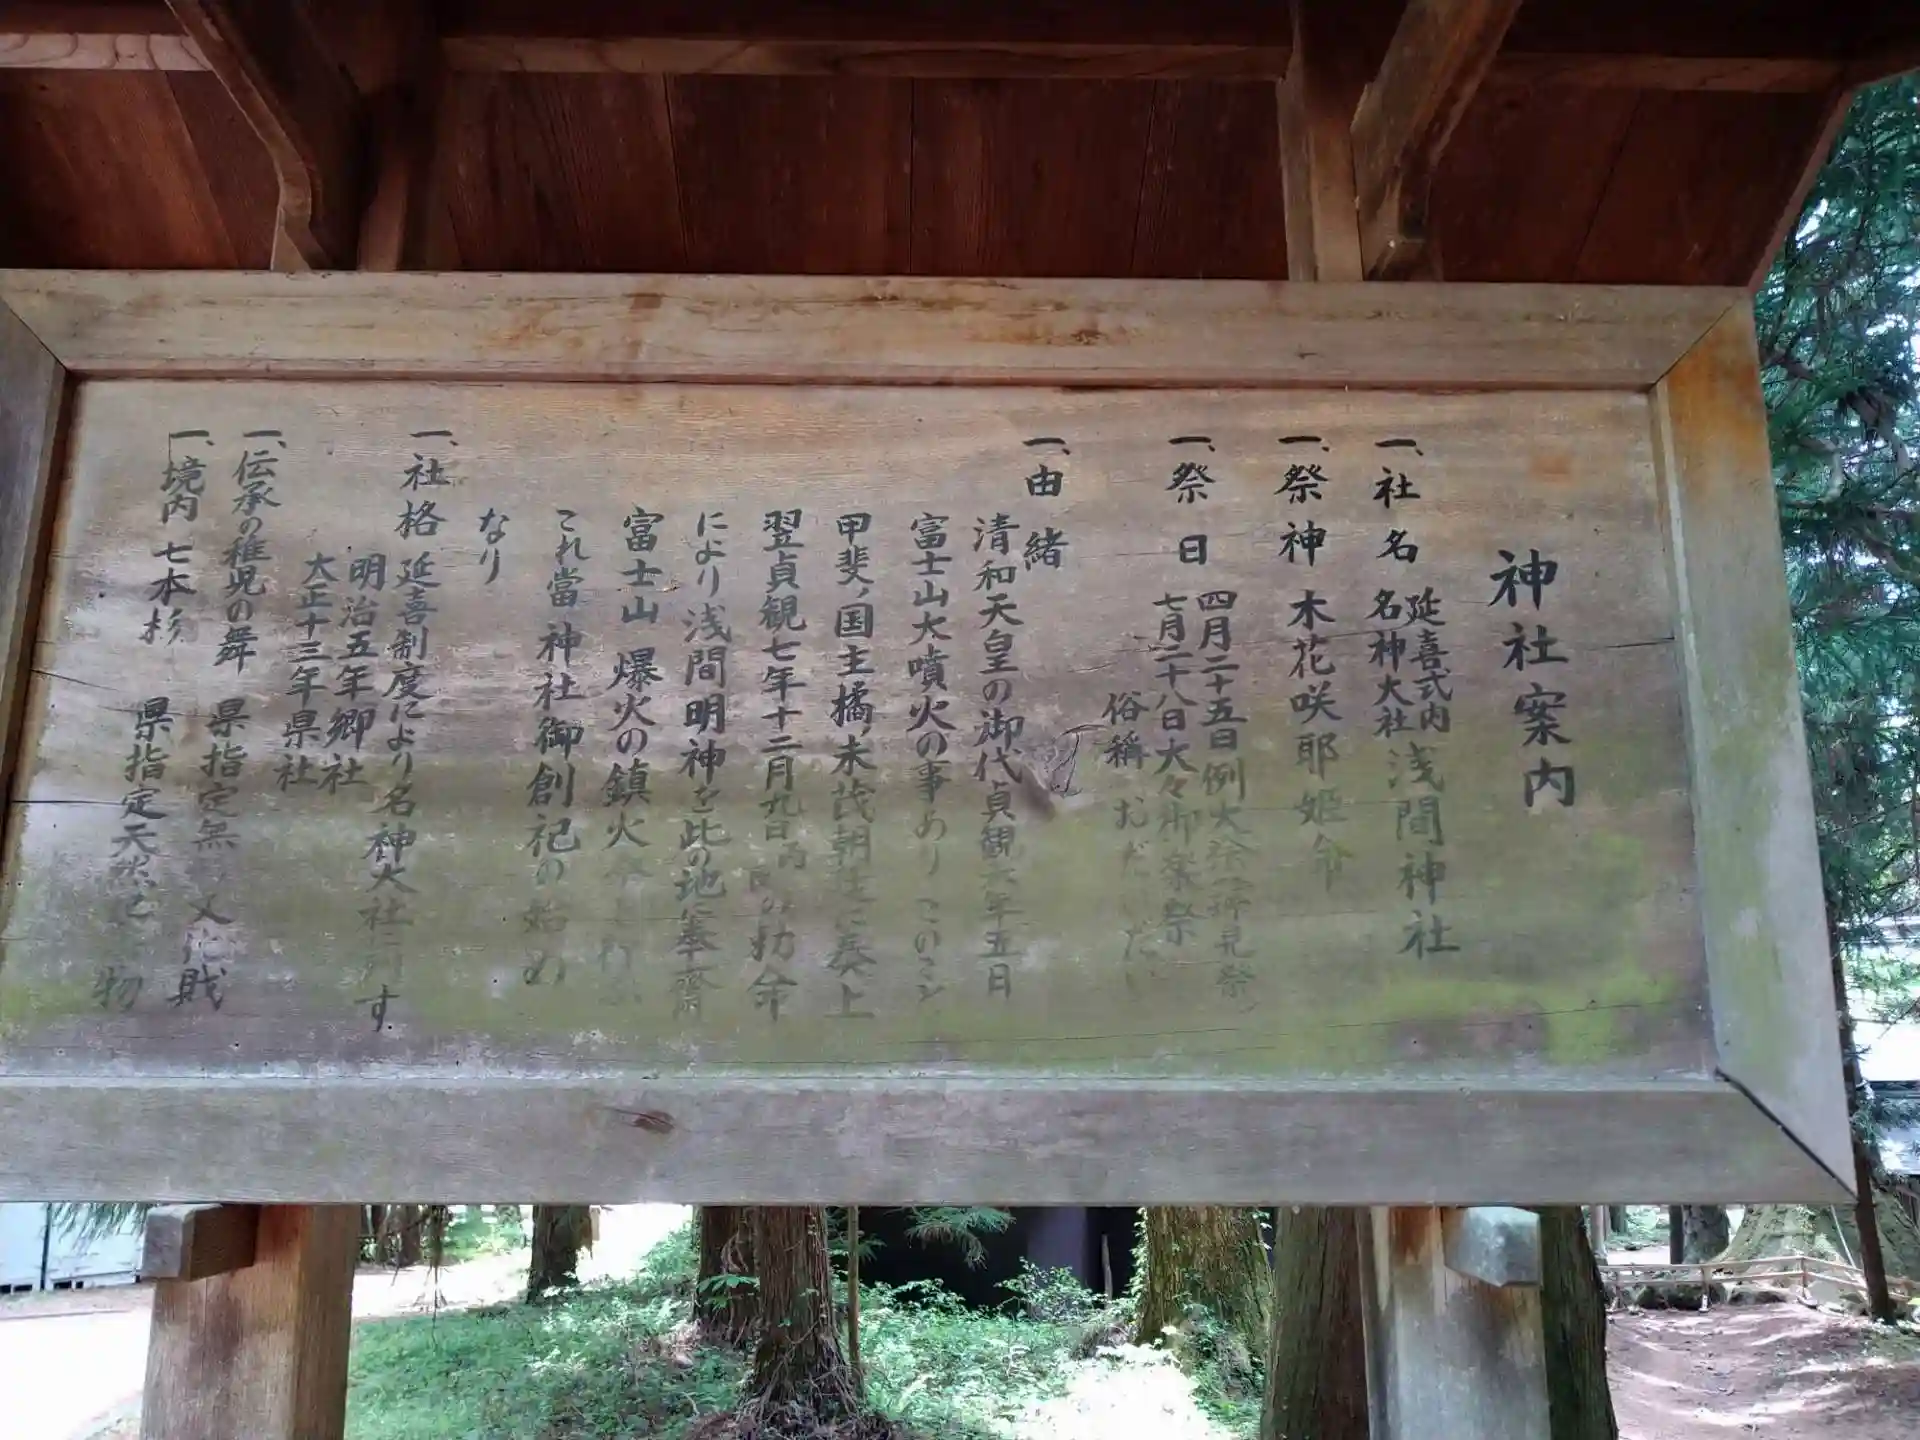 神社案内
一、社名 延喜式内
名神大社 浅間神社
一、祭神 木花咲耶姫命
一、祭日 四月二十五日例大祭
七月二十八日大々御楽祭
俗称 おだいだい
一、由緒
清和天皇の御代貞観六年五日
富士山大噴火の事あり この
甲斐ノ国主橘ノ末茂朝廷に奏上
翌貞観七年十二月九日 勅命
により浅間明神を此の地に奉齋
富士山 爆火の鎮火
これ當神社御創祀の始め
なり
一、社格 延喜制度により名神大社に列す
明治五年郷社
大正十三年県社
一、伝承の稚児の舞 県指定無 文化財
一、境内 七本杉 県指定天然 物